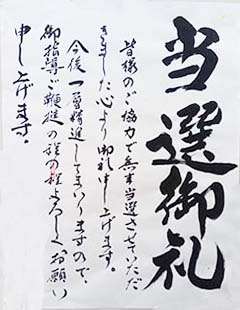 当選御礼
皆様のご協力で無事当選させていただ
きました心より御礼申し上げます。
今後一層精進してまいりますので、
御指導ご鞭撻の程の程よろしくお願い
申し上げます。